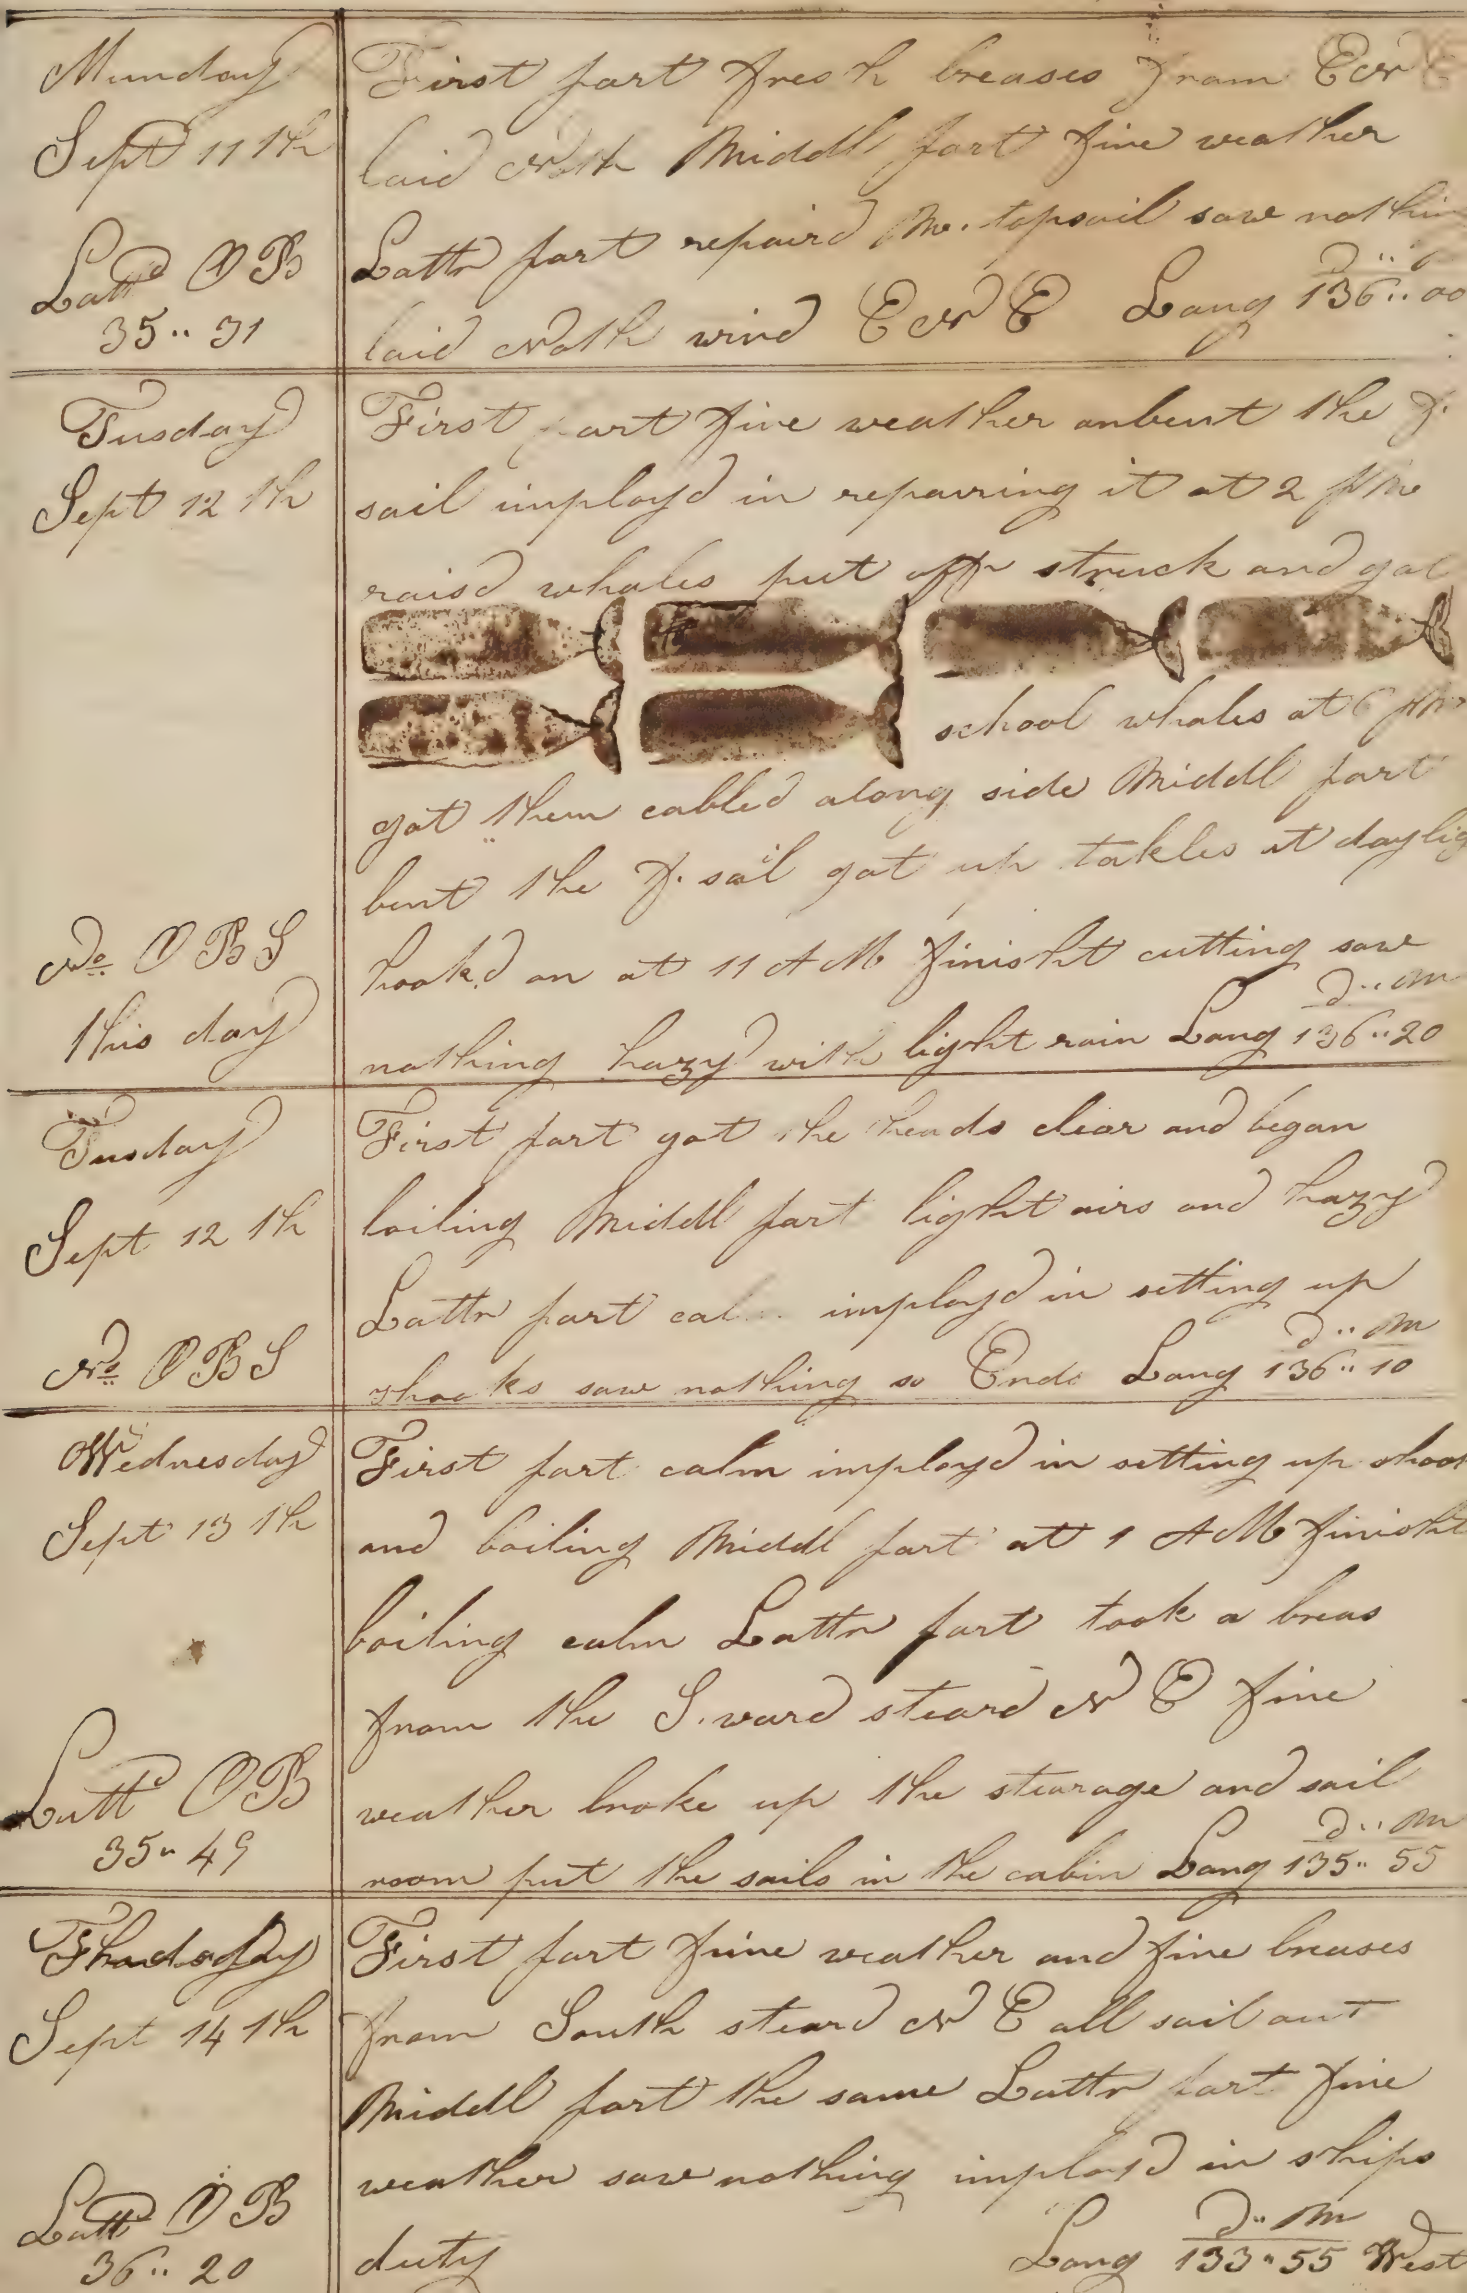 Munday
Sept 11th
Lattd OB
35.. 31
First part fresh breases from ENE
laid North Middl part fine weather
Lattr part repaird M. topsail saw nothin
laid North wind ENE Long 136.. 00
Tusday
Sept 12th
No OBS
this day
First part fine weather onbent the f.
sail imployd in repairing it at 2 PM
raisd whales put off struck and got
school whales at 6 PM
got them cabled along side Middl part
bent the f. sail got up takles at daylig
hookd on at 11 AM finisht cutting saw
D.. M
nothing hazy with light rain Long 136.. 20
Tusday
Sept 12th
No OBS
First part got the heads clear and began
boiling Middl part light airs and hazy
Lattr part cal imployd in setting up
D.. M
shooks saw nothing so Ends Long 136.. 10
Wednesday
Sept 13th
Lattd OB
35.. 49
First part calm imployd in setting up shook
and boiling Middl part at 1 AM finisht
boiling calm Lattr part took a breas
from the S.ward steard NE fine
weather broke up the stearage and sail
D.. M
room put the sails in the cabin Long 135.. 55
Sept 14th
Lattd OB
36.. 20
First part fine weather and fine breases
from South steard NE all sail out
Middl part the same Lattr part fine
weather saw nothing imployd in ships
D.. M
duty Long 133.. 55 West